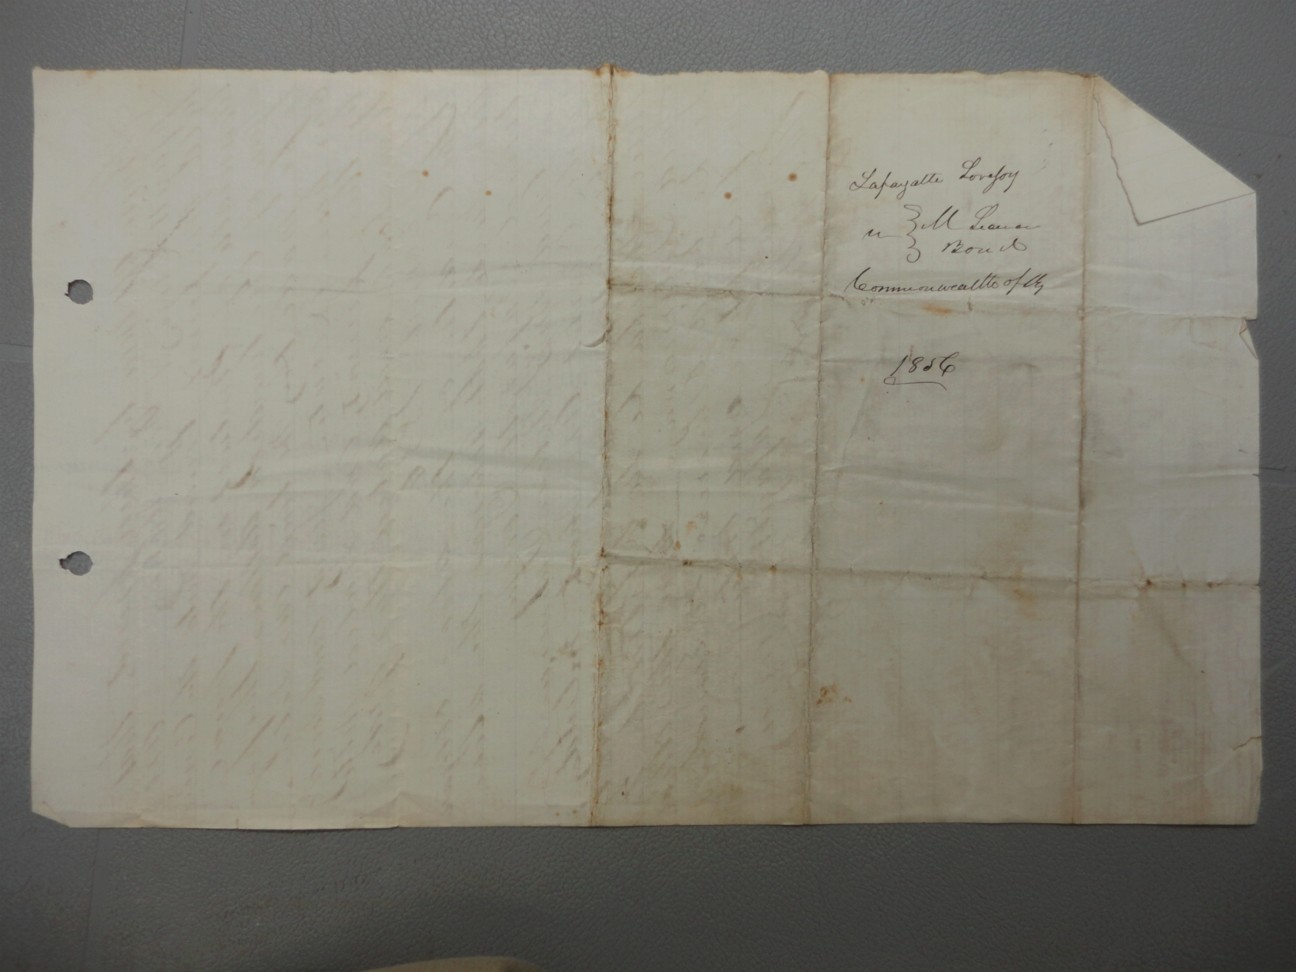 Lafayatte Lovejoy
M License
Bond
Commonwealth of Ky
1856